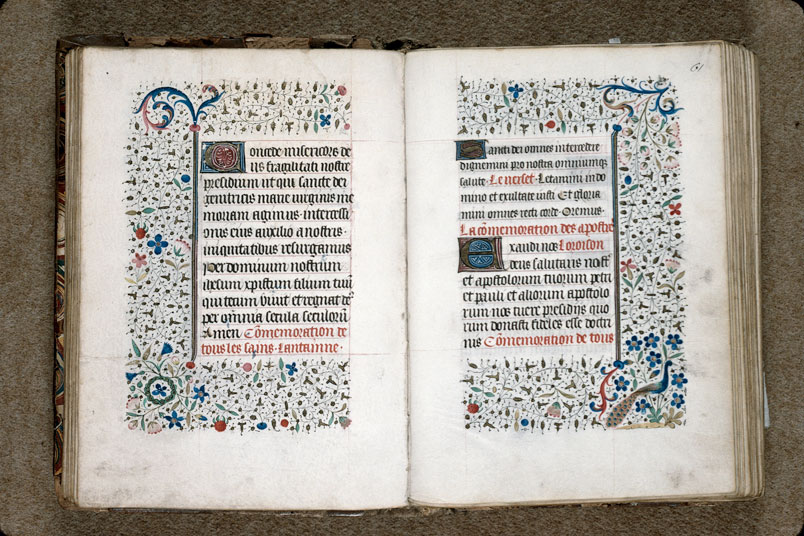 Concede misericors de
us fragilitati nostre
presidium ut qui sancte dei
genitricis marie virginis me
moriam agimus intercessi
onis eius auxilio a nostris
iniquitatibus resurgamus
per dominum nostrum
ihesum xpistum filium tuum
qui tecum vivit et regnat deus
per omnia secula seculorũ
Amen Cõmemoration de
tous les sains Lantainne
61
Sancti dei omnes intercedere
dignemini pro nostra omniumq
salute Le verset Letamini in do
mino et exultate iusti Et gloria
mini omnes recti corde Oremus
La cõmemoration des apostre
Exaudi nos Lororson
deus salutaris nost
et apostolorum tuorum petri
et pauli et aliorum apostolo
rum nos tuere presidiis quo
rum donasti fideles esse doctri
nis Cõmemoration de tous